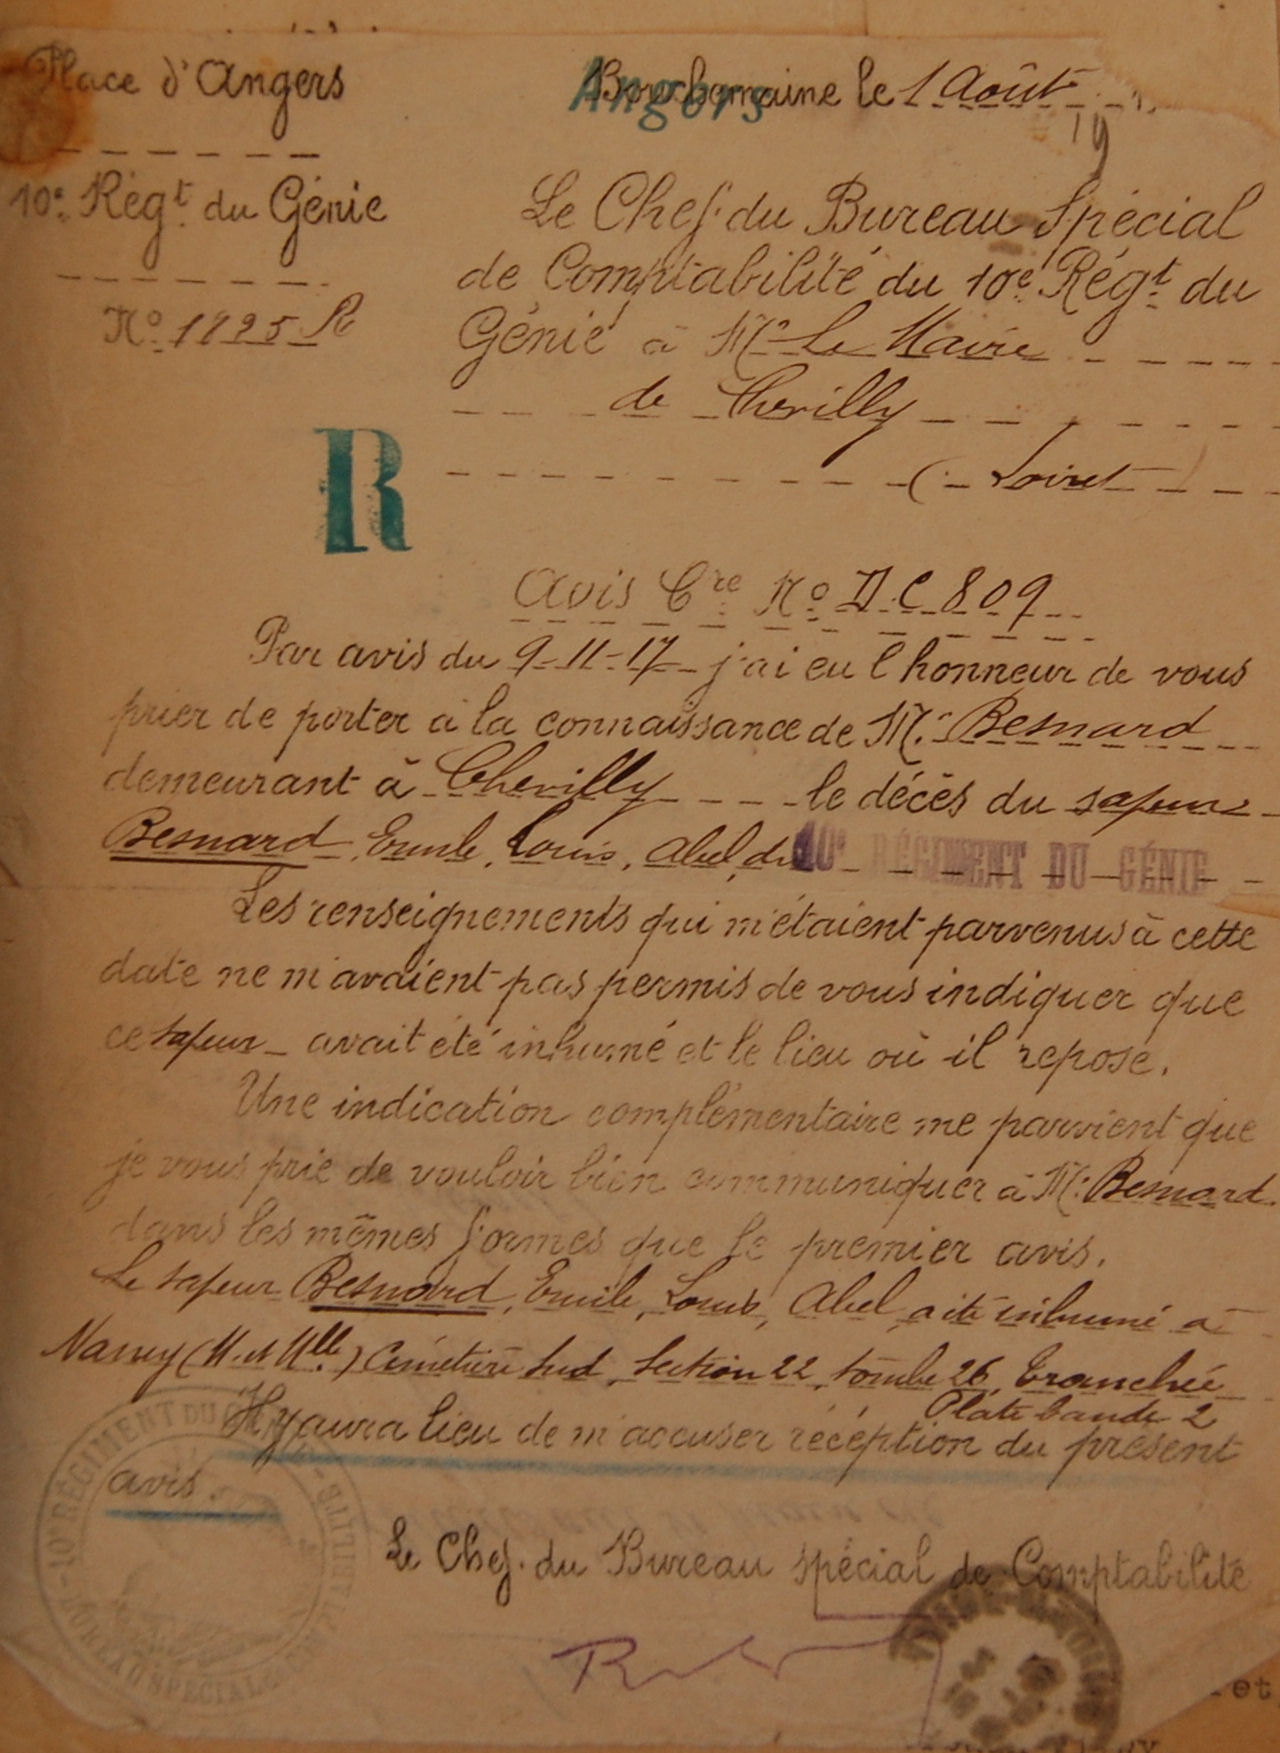 Place d'Angers
Angers
Bouchemaine le 1 Août
19
10e Régt du Génie
No 1225 R
Le Chef du Bureau Spécial
de Comptabilité du 10e Régt du
Génie à Mr Le Maire
de Chevilly
(Loiret)
R
Avis Cre No D.C. 809
Par avis du 9-11-17 j'ai eu l'honneur de vous
prier de porter à la connaissance de Mr. Besnard
demeurant à Chevilly le décès du sapeur
Besnard, Emile, Louis, Abel, du 10e RÉGIMENT DU GÉNIE
Les renseignements qui m'étaient parvenus à cette
date ne m'avaient pas permis de vous indiquer que
ce sapeur avait été inhumé et le lieu où il repose.
Une indication complémentaire me parvient que
je vous prie de vouloir bien communiquer à Mr. Besnard
dans les mêmes formes que le premier avis.
Le sapeur Besnard, Emile, Louis, Abel, a été inhumé à
Nancy (M. et Mlle.) Cimetière Sud, Section 22, tombe 26, Tranchée
Plate bande 2
Il y aura lieu de m'accuser réception du présent
avis.
Le Chef du Bureau spécial de Comptabilité
10e RÉGIMENT DU GÉNIE
BUREAU SPECIAL
et